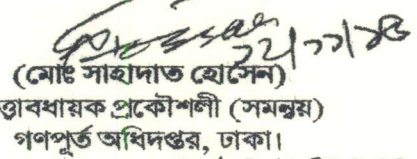 ২২/১১/১৬
(মোঃ সাহাদাত হোসেন)
ত্তাবধায়ক প্রকৌশলী (সমন্বয়)
গণপূর্ত অধিদপ্তর, ঢাকা।